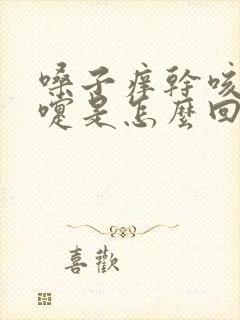 嗓子痒幹咳
嚏是怎麼回
喜歡